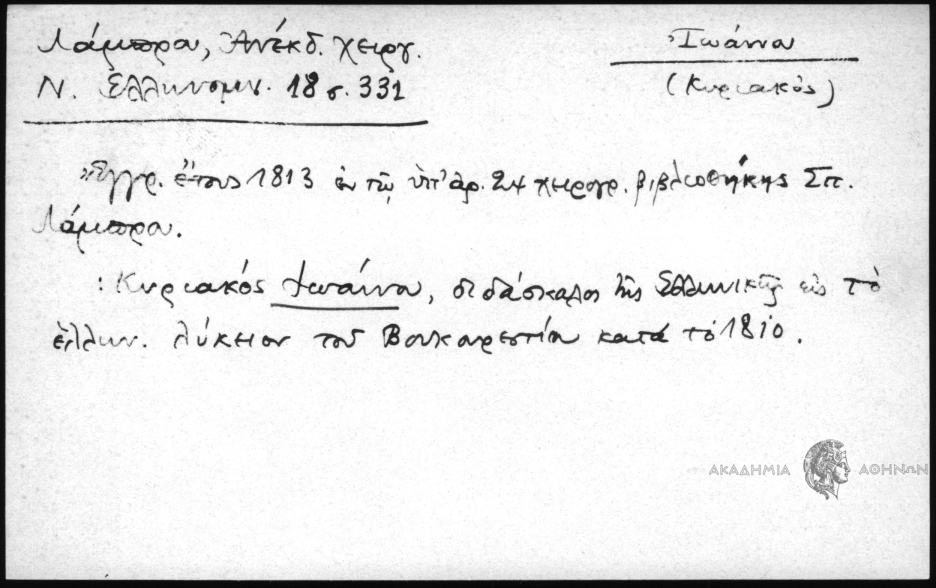 Λάμπρου, Ἀνέκδ. χειργ.
Ν. Ἑλληνομν. 18 σ. 331
Ἰωάννου
(Κυριακός)
Ἔγγρ. ἔτους 1813 ἐν τῷ ὑπ' ἀρ. 24 χειρογρ. βιβλιοθήκης Σπ.
Λάμπρου.
: Κυριακός Ἰωάννου, διδάσκαλος τῆς Ἑλληνικῆς εἰς τὸ
ἑλλην. λύκειον τοῦ Βουκουρεστίου κατά τὸ 1810.
ΑΚΑΔΗΜΙΑ ΑΘΗΝΩΝ